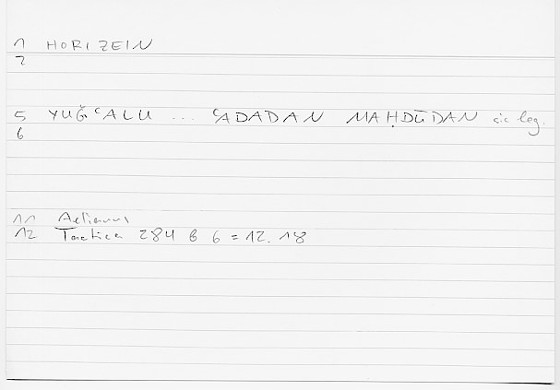 1 HORIZEIN
2
5 YUǦʿALU ... ʿADADAN MAḤDŪDAN sic leg.
6
11 Aelianus
12 Tactica 284 B 6 = 12.18